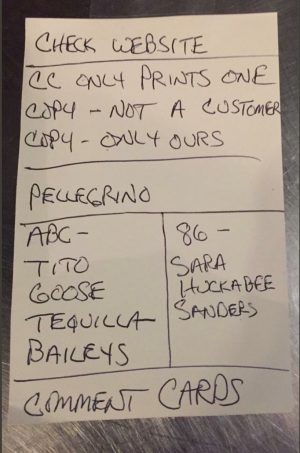 CHECK WEBSITE
CC ONLY PRINTS ONE
COPY - NOT A CUSTOMER
COPY - ONLY OURS
PELLEGRINO
ABC-
TITO
GOOSE
TEQUILLA
BAILEYS
86 -
SARA
HUCKABEE
SANDERS
COMMENT CARDS